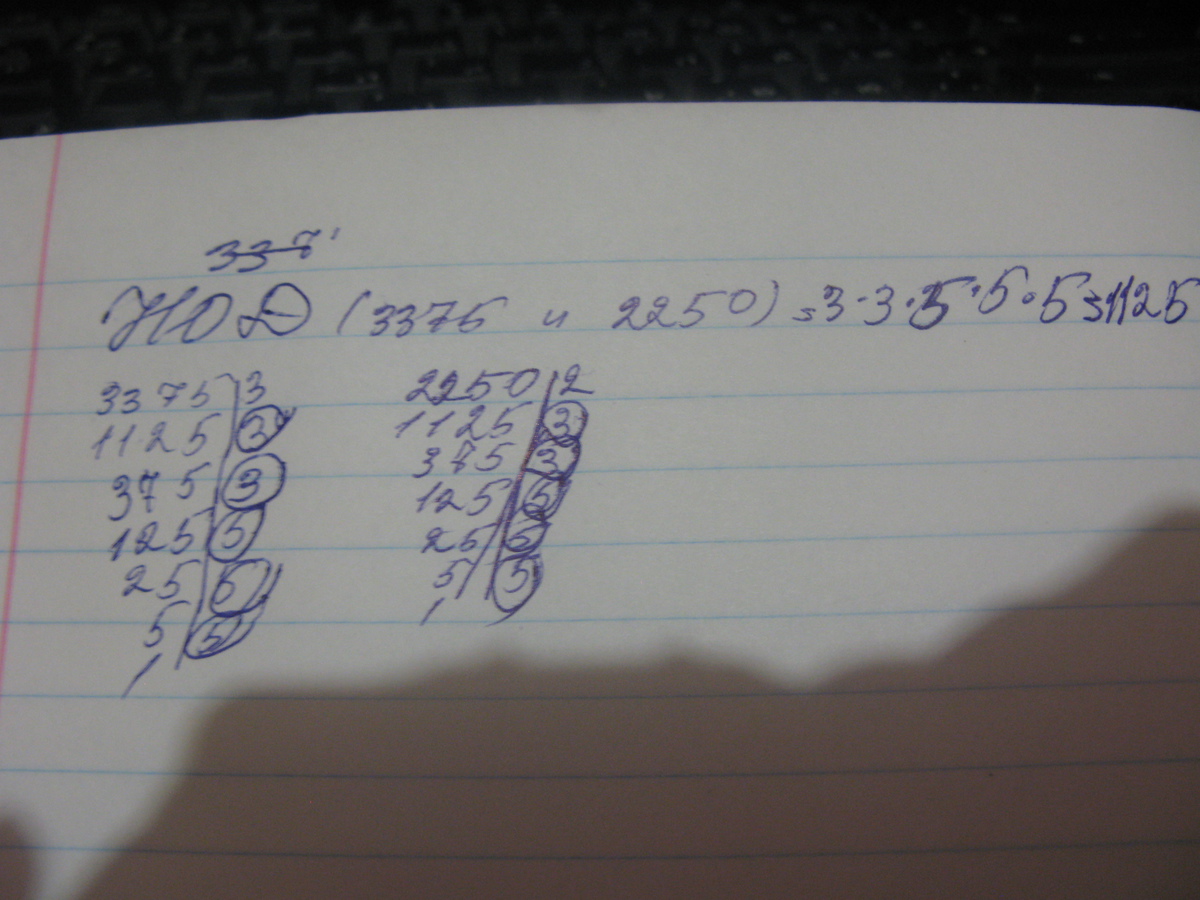 337
НОД (3375 и 2250) = 3·3·5·5·5=1125
3375 3 2250 2
1125 3 1125 3
375 3 375 3
125 5 125 5
25 5 25 5
5 5 5 5
1 1